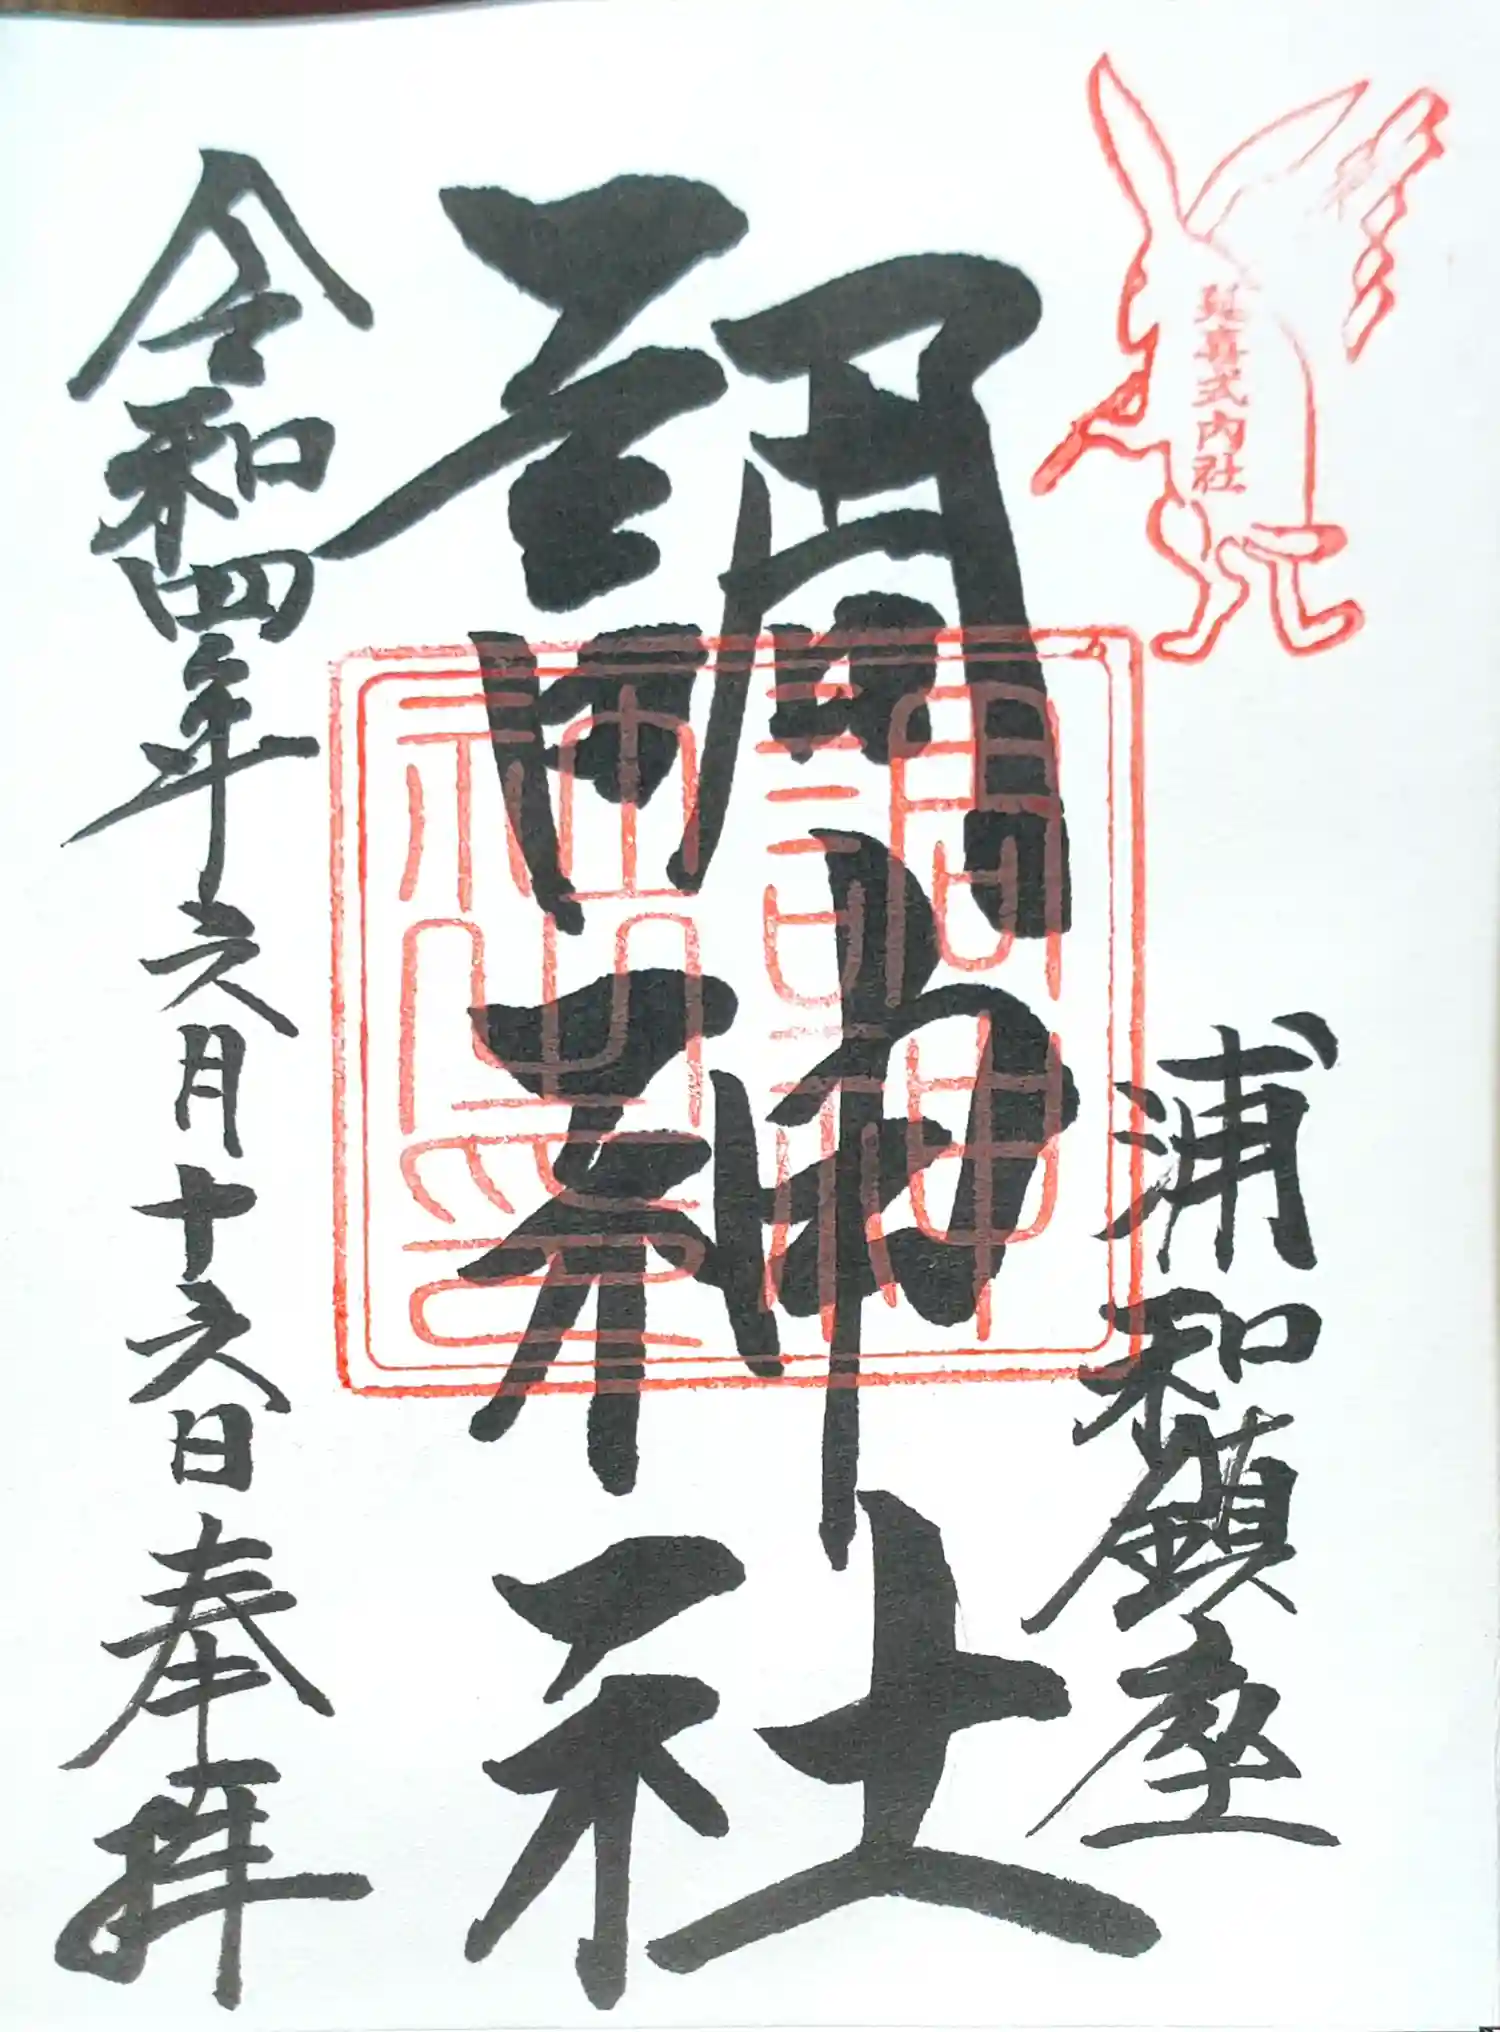 延喜式内社
浦和鎮座
調神社
調神社神社之印
令和四年六月十六日奉拝